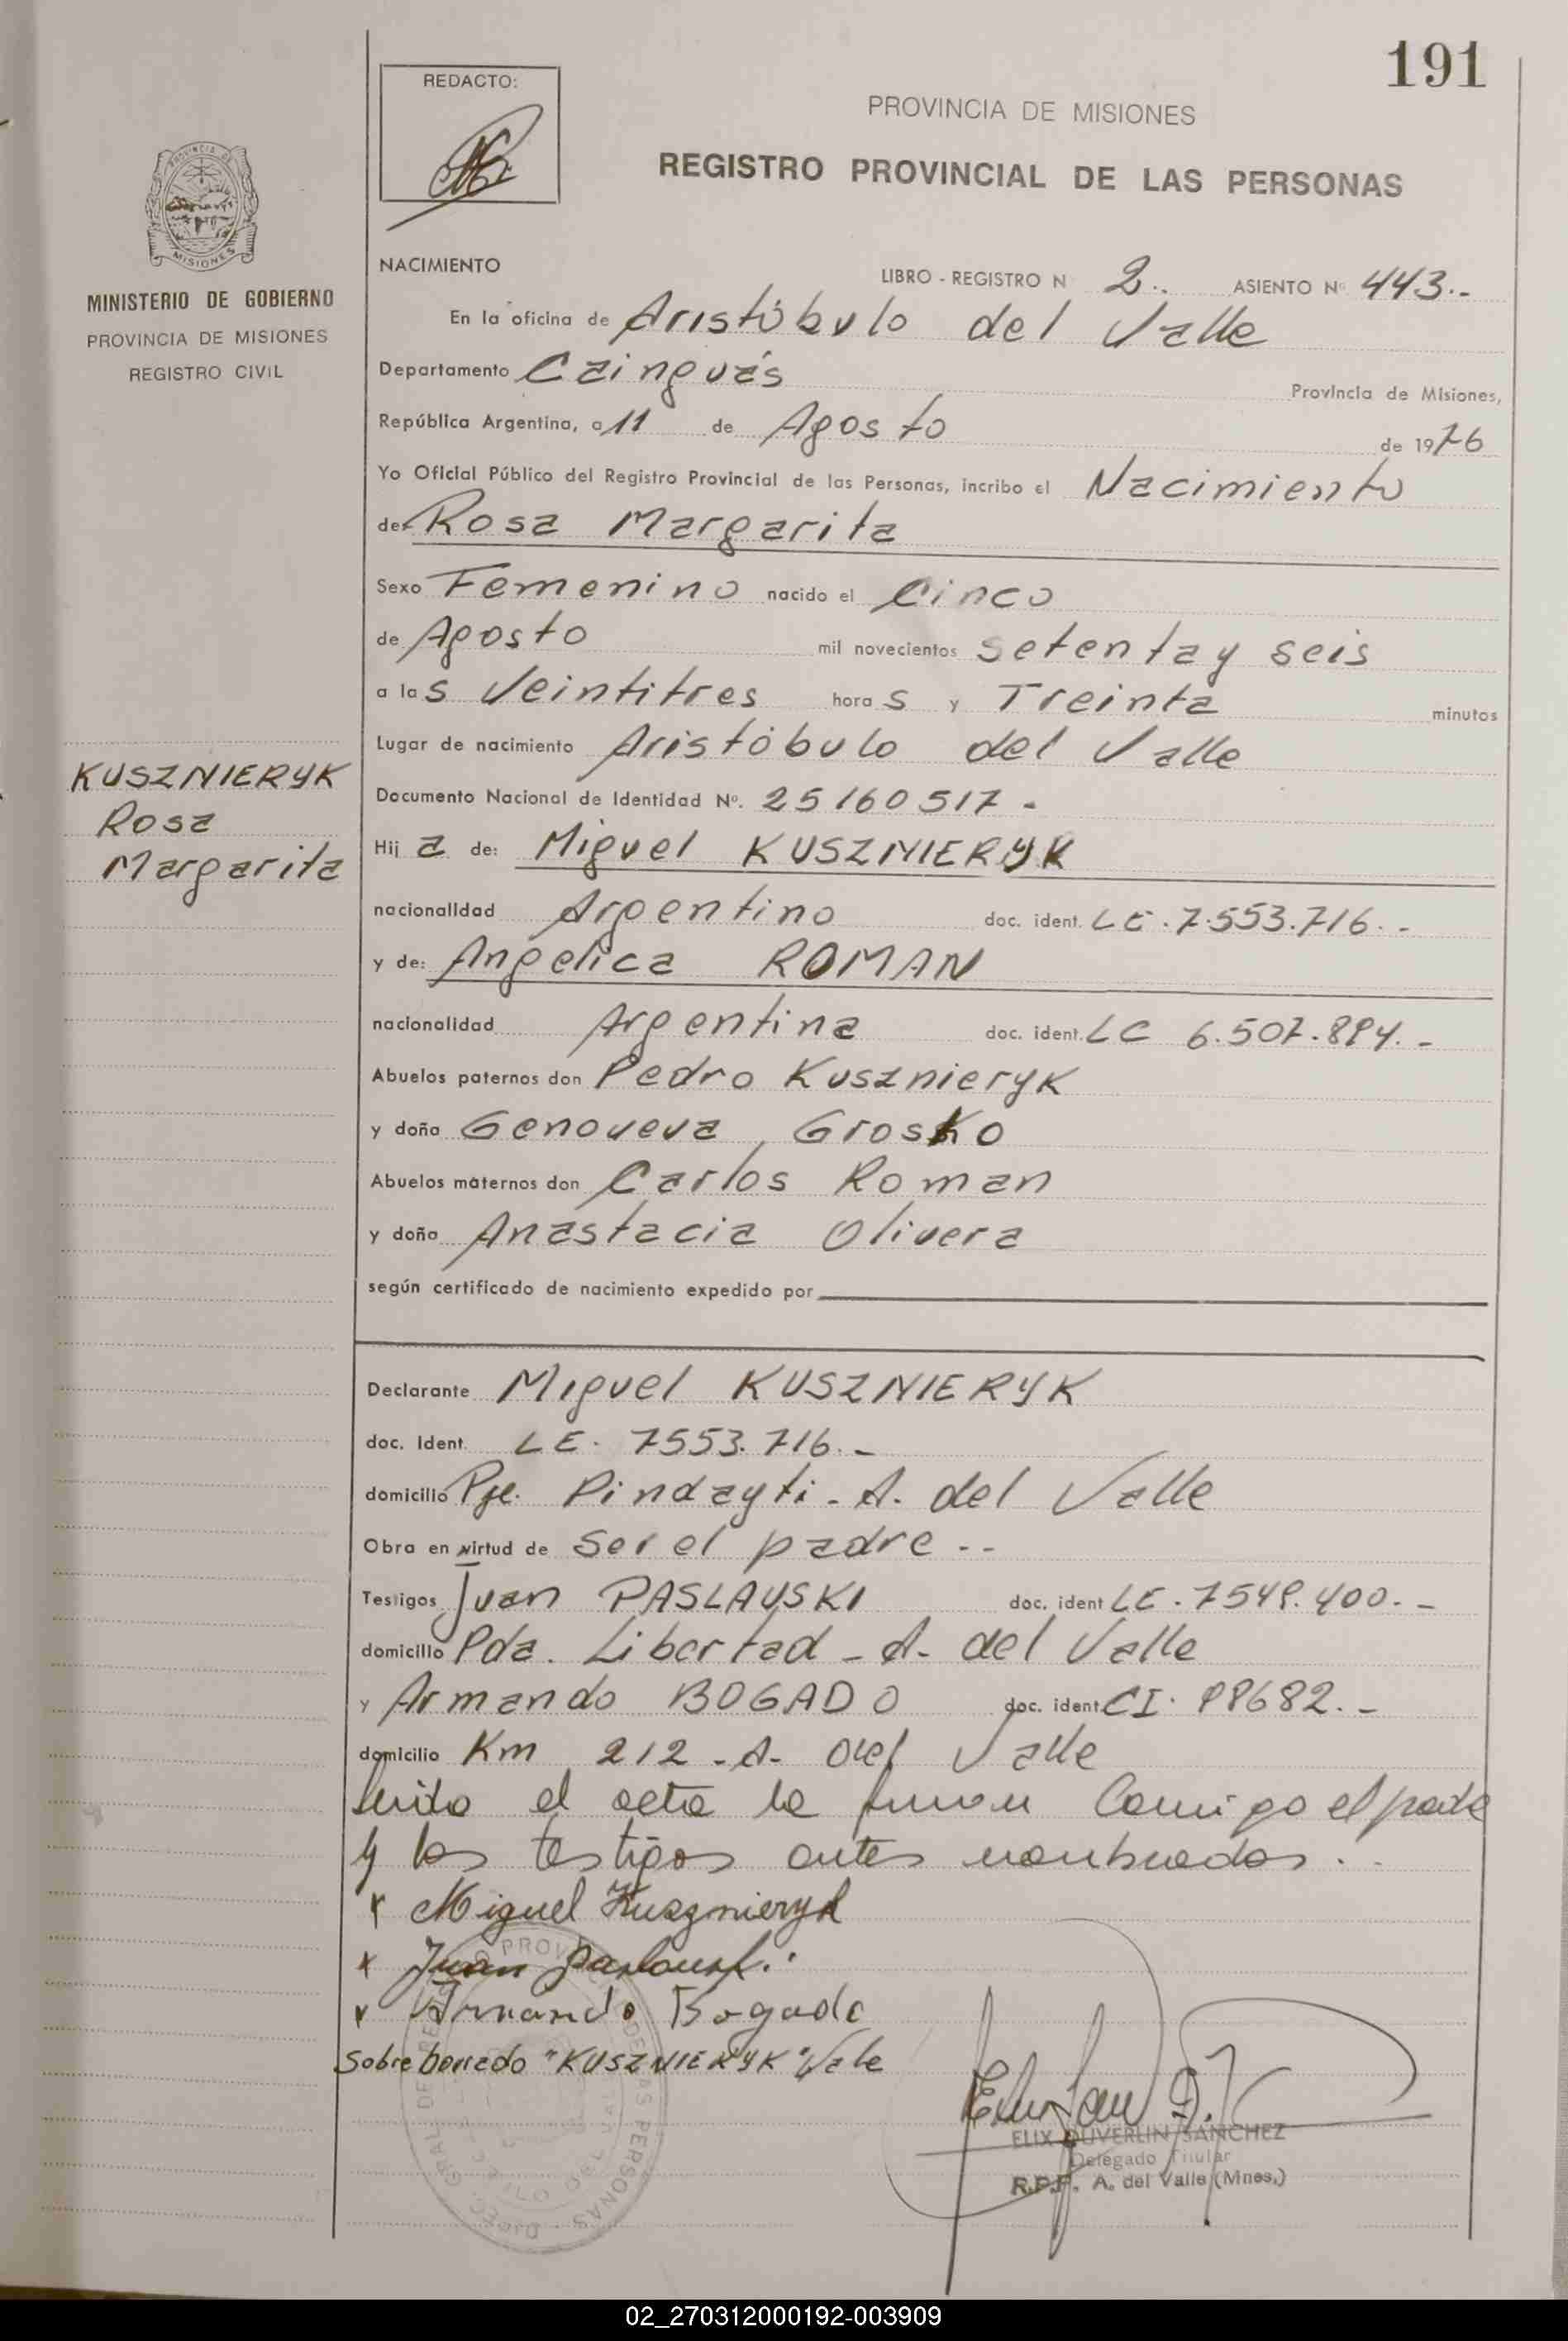 191
REDACTO:
PROVINCIA DE MISIONES
REGISTRO PROVINCIAL DE LAS PERSONAS
MISIONES
MINISTERIO DE GOBIERNO
PROVINCIA DE MISIONES
REGISTRO CIVIL
NACIMIENTO LIBRO - REGISTRO N 2.. ASIENTO Nº 443.-
En la oficina de Aristóbulo del Valle
Departamento Cainguás Provincia de Misiones,
República Argentina, a 11 de Agosto de 1976
Yo Oficial Público del Registro Provincial de las Personas, incribo el Nacimiento
de Rosa Margarita
Sexo Femenino nacido el Cinco
de Agosto mil novecientos setenta y seis
a las Veintitres horas y Treinta minutos
Lugar de nacimiento Aristóbulo del Valle
KUSZNIERYK
Rosa
Margarita
Documento Nacional de Identidad Nº. 25160517 -
Hija de: Miguel KUSZNIERYK
nacionalidad Argentino doc. ident. LE. 7.553.716. -
y de: Angelica ROMAN
nacionalidad Argentina doc. ident. LC 6.507.894. -
Abuelos paternos don Pedro Kusznieryk
y doña Genoveva Grosko
Abuelos maternos don Carlos Roman
y doña Anastacia Olivera
según certificado de nacimiento expedido por
Declarante Miguel KUSZNIERYK
doc. Ident. LE. 7553.716. -
domicilio Pje. Pindayti - A. del Valle
Obra en virtud de ser el padre - -
Testigos Juan PASLAUSKI doc. ident LE. 7549.400. -
domicilio Pda. Libertad - A. del Valle
y Armando BOGADO doc. ident. CI. 98682. -
domicilio Km 212 - A. del Valle
leida el acta la firman Conmigo el padre
y los testigos antes nombrados. .
Miguel Kusznieryk
Juan
Armando Bogado
Sobre borrado "KUSZNIERYK" Vale
ELIX DUVERLIN SANCHEZ
Delegado Titular
R.P.P. A. del Valle (Mnes.)
02_270312000192-003909